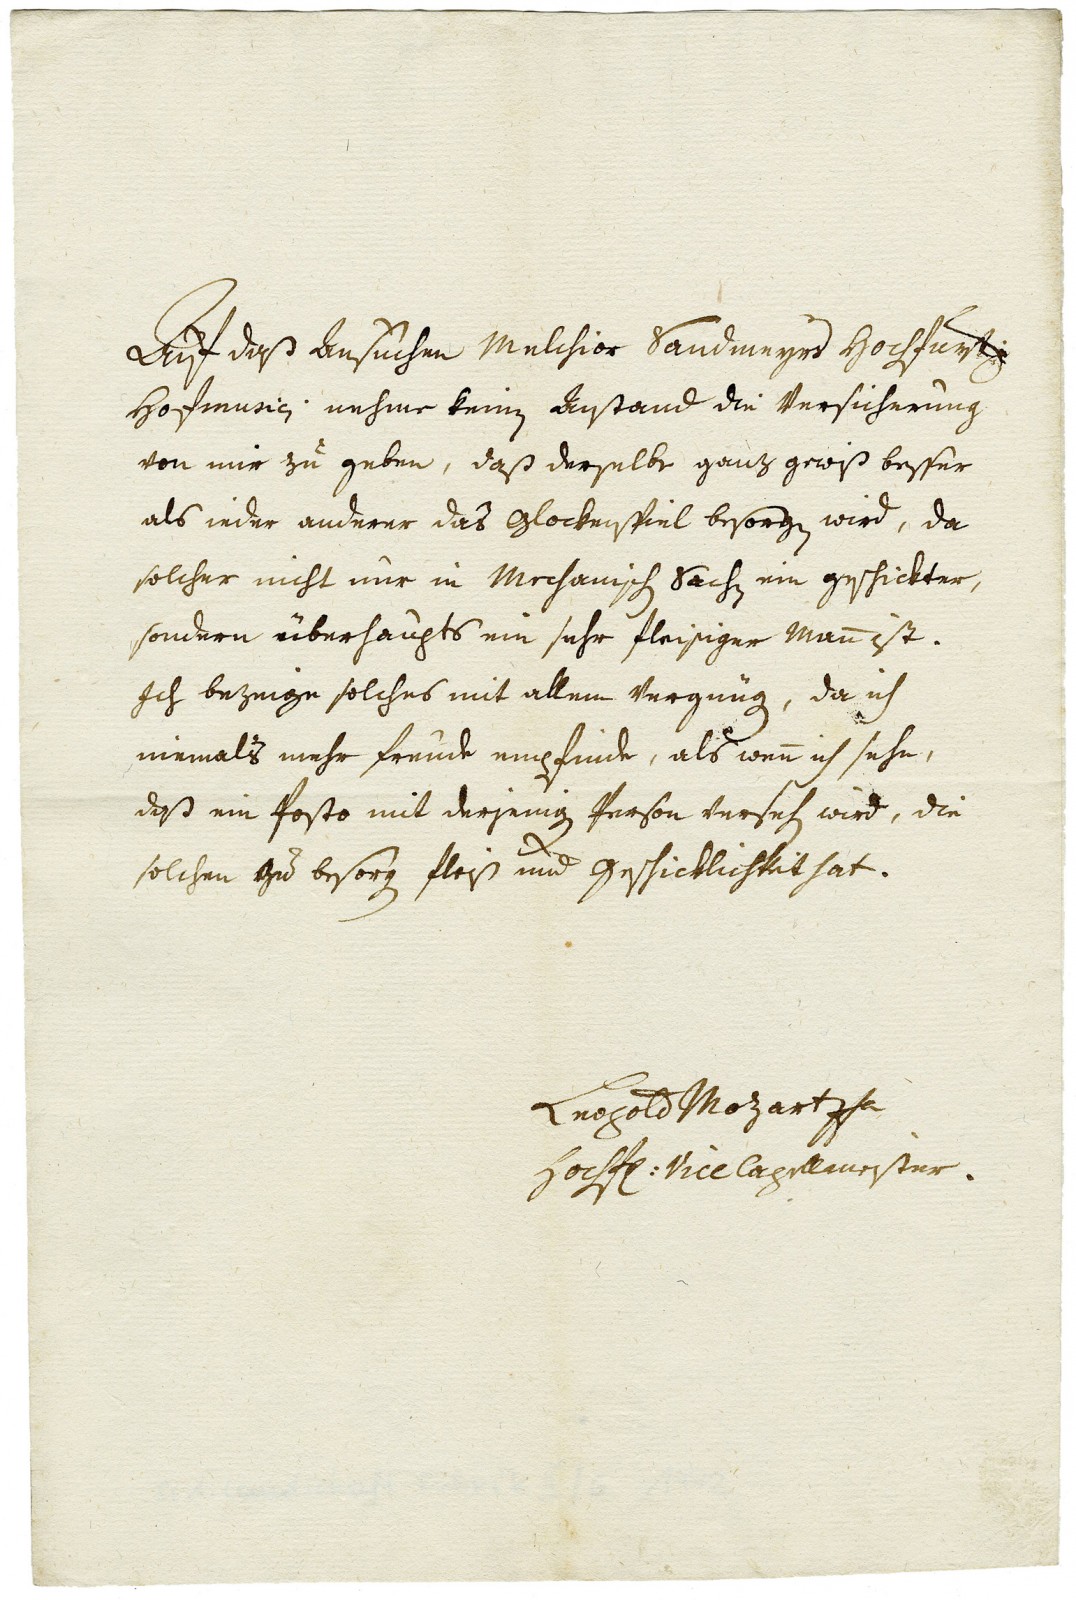 Auf daß Ansuchen Melchior Sandmeyrs Hochfürstl:
Hofmusici nehme keinen Anstand die Versicherung
von mir zu geben, daß derselbe ganz gewiß besser
als ieder anderer das Glockenspiel besorgen wird, da
solcher nicht nur in Mechanischen Sachen ein geschickter,
sondern überhaupts ein sehr fleisiger Mann ist.
Ich bezeige solches mit allem Vergnügen, da ich
niemals mehr freude empfinde, als wenn ich sehe,
daß ein Posto mit derjenigen Person versehen wird, die
solchen zu besorgen fleiß und Geschicklichkeit hat.
Leopold Mozart
Hochf: Vice Capellmeister.